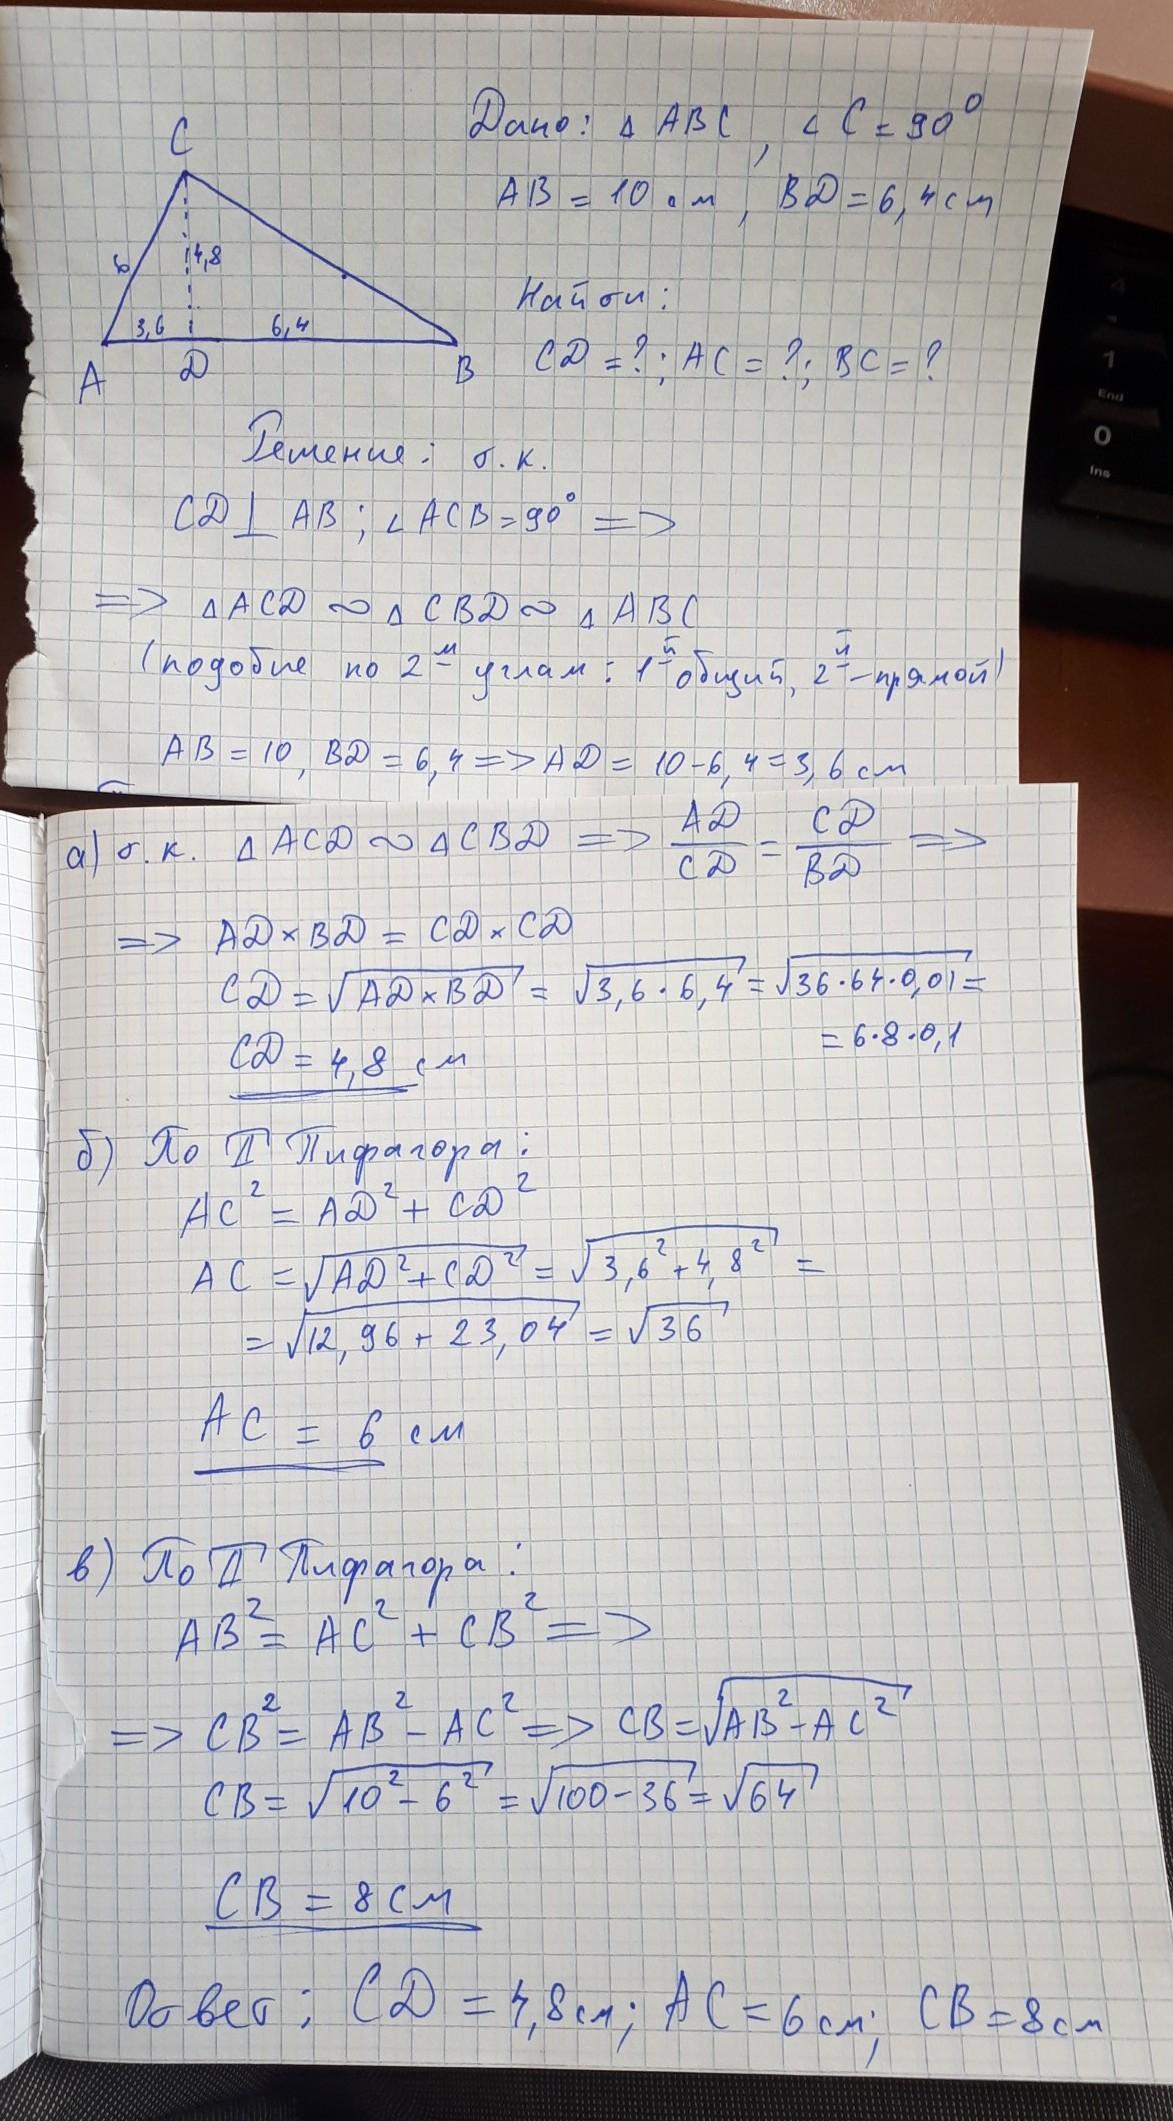 C
6
4,8
3,6
6,4
A
D
B
Дано: △ ABC, ∠ C = 90°
AB = 10 см, BD = 6,4 см
Найти:
CD = ?; AC = ?; BC = ?
Решение: т.к.
CD ⊥ AB; ∠ ACB = 90° =>
=> △ ACD ∾ △ CBD ∾ △ ABC
(подобие по 2м углам: 1й общий, 2й - прямой)
AB = 10, BD = 6,4 => AD = 10 - 6,4 = 3,6 см
а) т.к. △ ACD ∾ △ CBD => AD/CD = CD/BD =>
=> AD × BD = CD × CD
CD = √(AD × BD) = √(3,6 · 6,4) = √(36 · 64 · 0,01) =
= 6 · 8 · 0,1
CD = 4,8 см
б) По T Пифагора:
AC² = AD² + CD²
AC = √(AD² + CD²) = √(3,6² + 4,8²) =
= √(12,96 + 23,04) = √36
AC = 6 см
в) По T Пифагора:
AB² = AC² + CB² =>
=> CB² = AB² - AC² => CB = √(AB² - AC²)
CB = √(10² - 6²) = √(100 - 36) = √64
CB = 8 см
Ответ: CD = 4,8 см; AC = 6 см; CB = 8 см
1
End
0
Ins